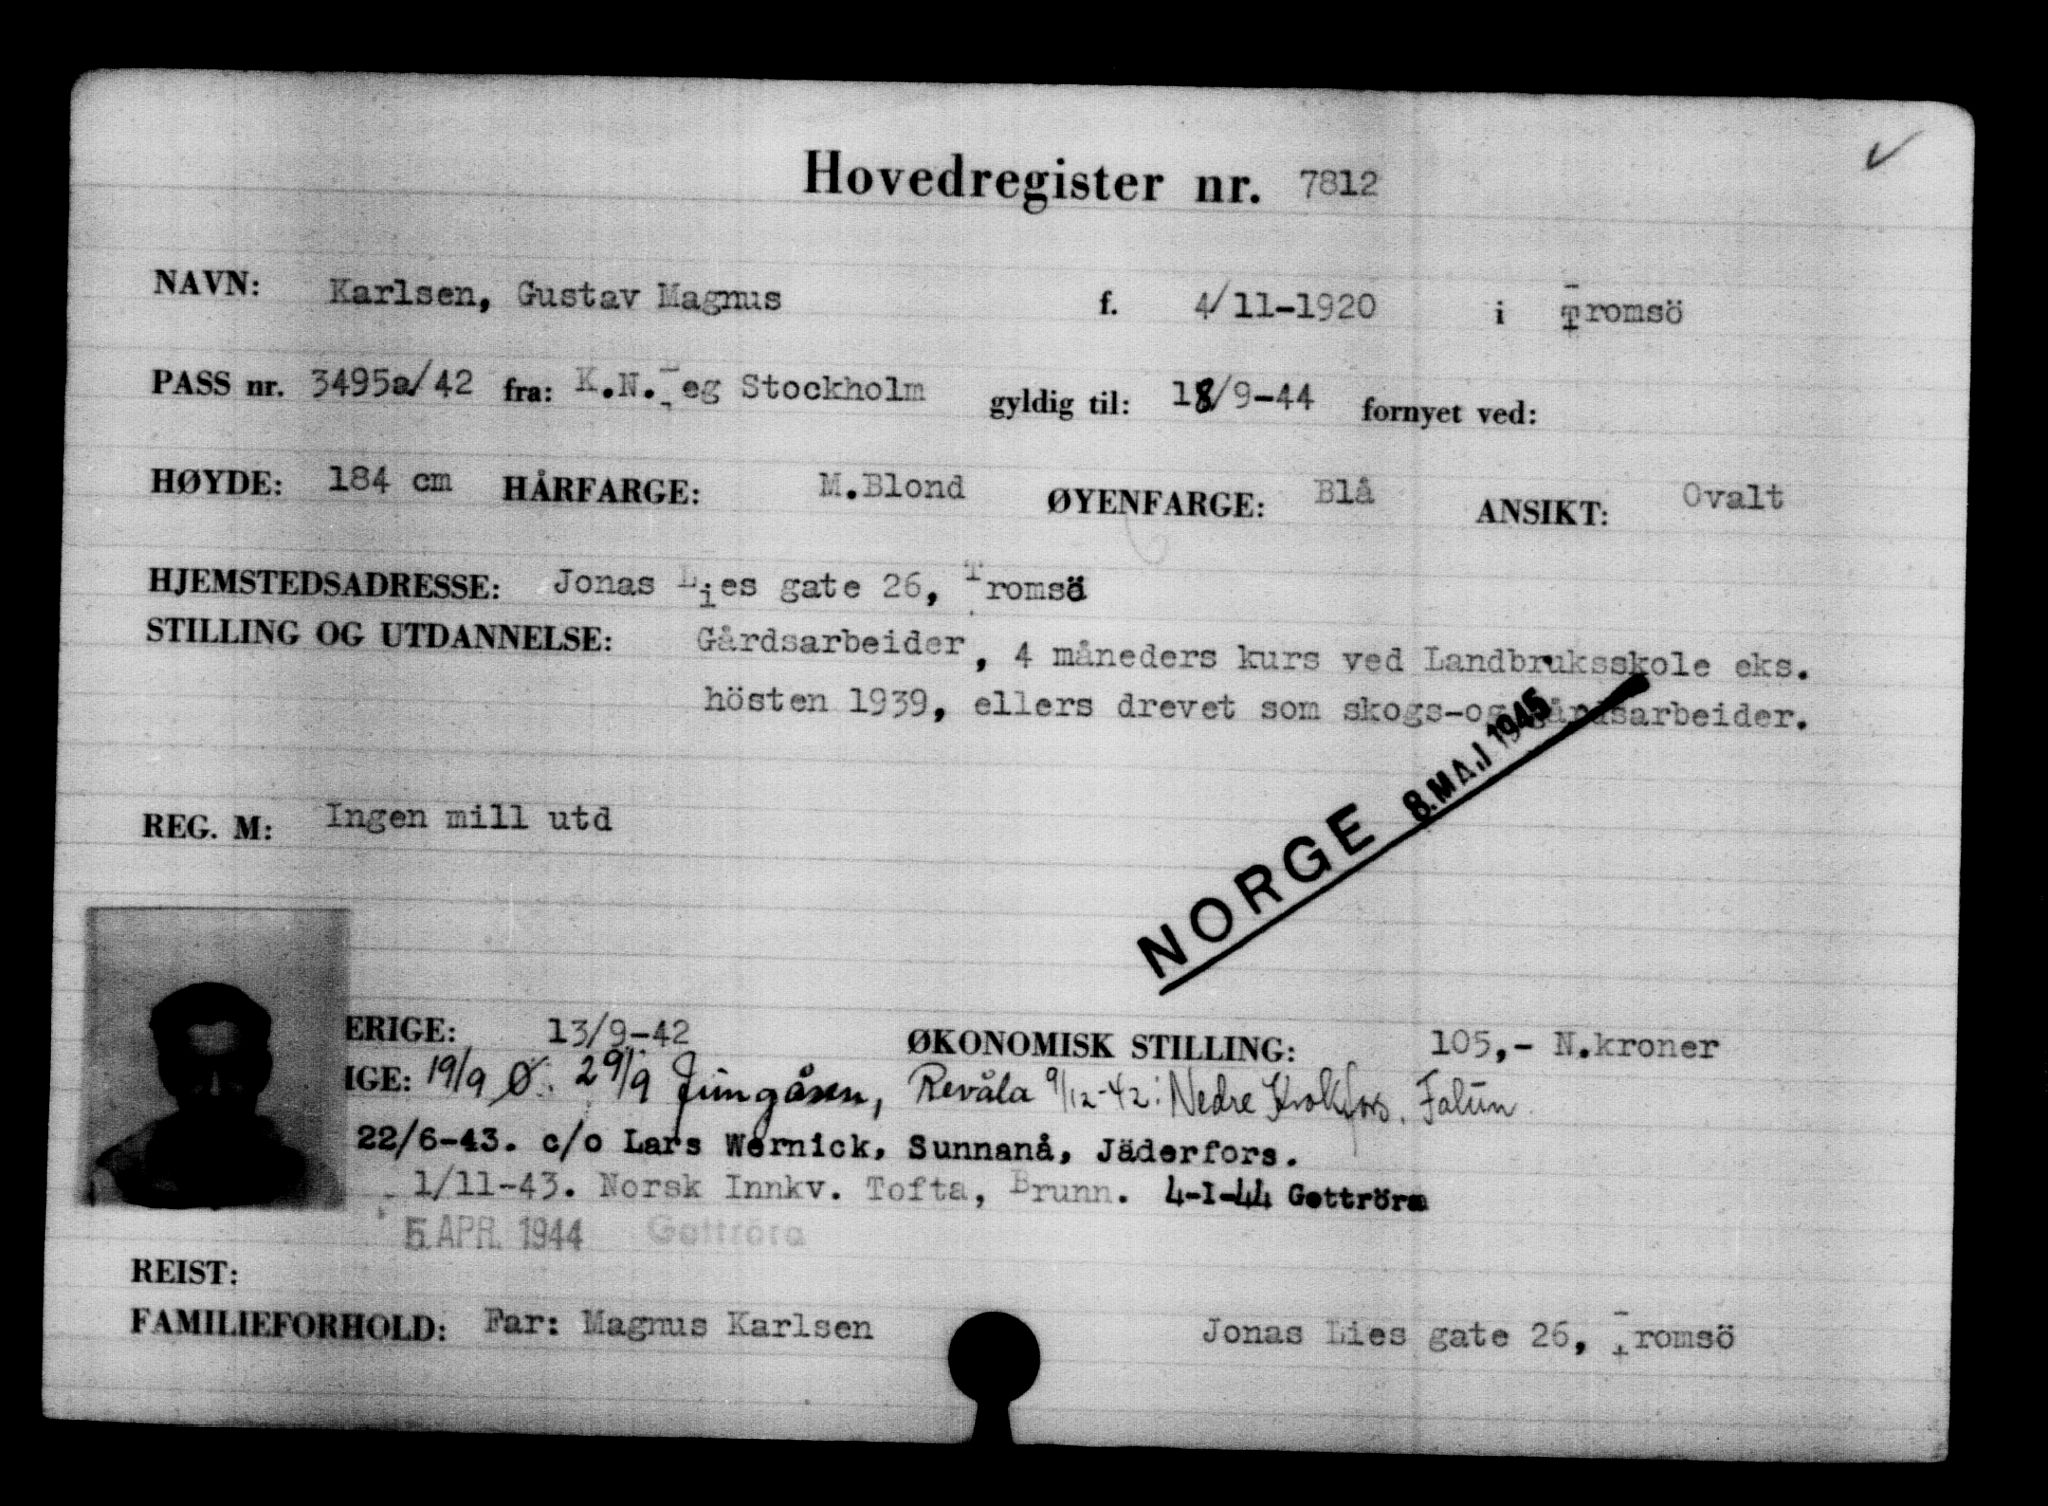 Hovedregister nr. 7812
NAVN: Karlsen, Gustav Magnus f. 4/11-1920 i Tromsö
PASS nr. 3495a/42 fra: K.N.Leg Stockholm gyldig til: 18/9-44 fornyet ved:
HØYDE: 184 cm HÅRFARGE: M.Blond ØYENFARGE: Blå ANSIKT: Ovalt
HJEMSTEDSADRESSE: Jonas Lies gate 26, Tromsö
STILLING OG UTDANNELSE: Gårdsarbeider, 4 måneders kurs ved Landbruksskole eks.
hösten 1939, ellers drevet som skogs-og gårdsarbeider.
NORGE 8. MAJ 1945
REG. M: Ingen mill utd
ERIGE: 13/9-42 ØKONOMISK STILLING: 105,- N.kroner
IGE: 19/9 Ø. 29/9 Jimgåsen, Revåla 9/12-42: Nedre Krokfors. Falun
22/6-43. c/o Lars Wernick, Sunnanå, Jäderfors.
1/11-43. Norsk Innkv. Tofta, Brunn. 4-I-44 Gottröra
5. APR. 1944 Gottröra
REIST:
FAMILIEFORHOLD: Far: Magnus Karlsen Jonas Lies gate 26, Tromsö